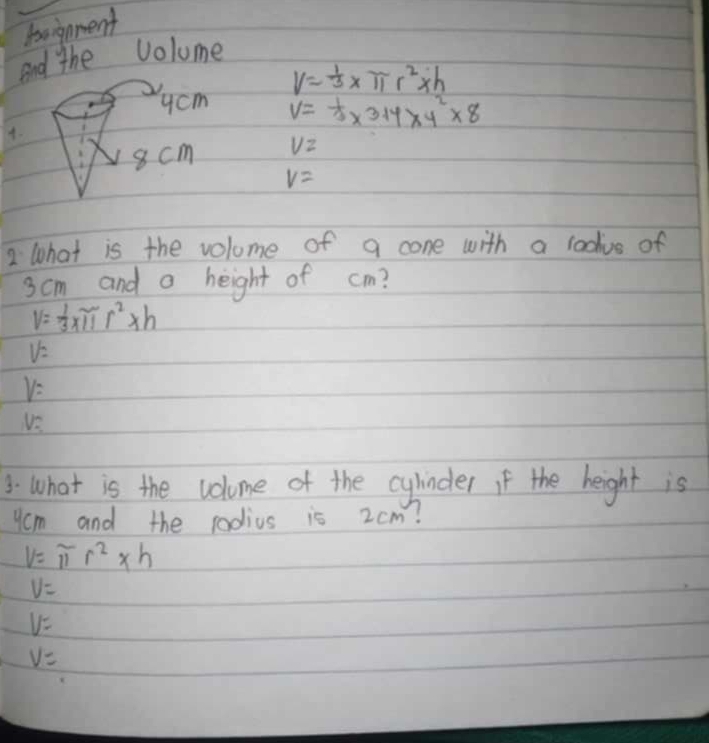 Assignment
Find the Volume
1.
4cm
8 cm
V= 1/3 x π r² x h
V= 1/3 x 3.14 x 4² x 8
V=
V=
2. What is the volume of a cone with a radius of
3cm and a height of cm?
V= 1/3 x π r² x h
V=
V=
V=
3. What is the volume of the cylinder if the height is
4cm and the radius is 2cm?
V= π r² x h
V=
V=
V=